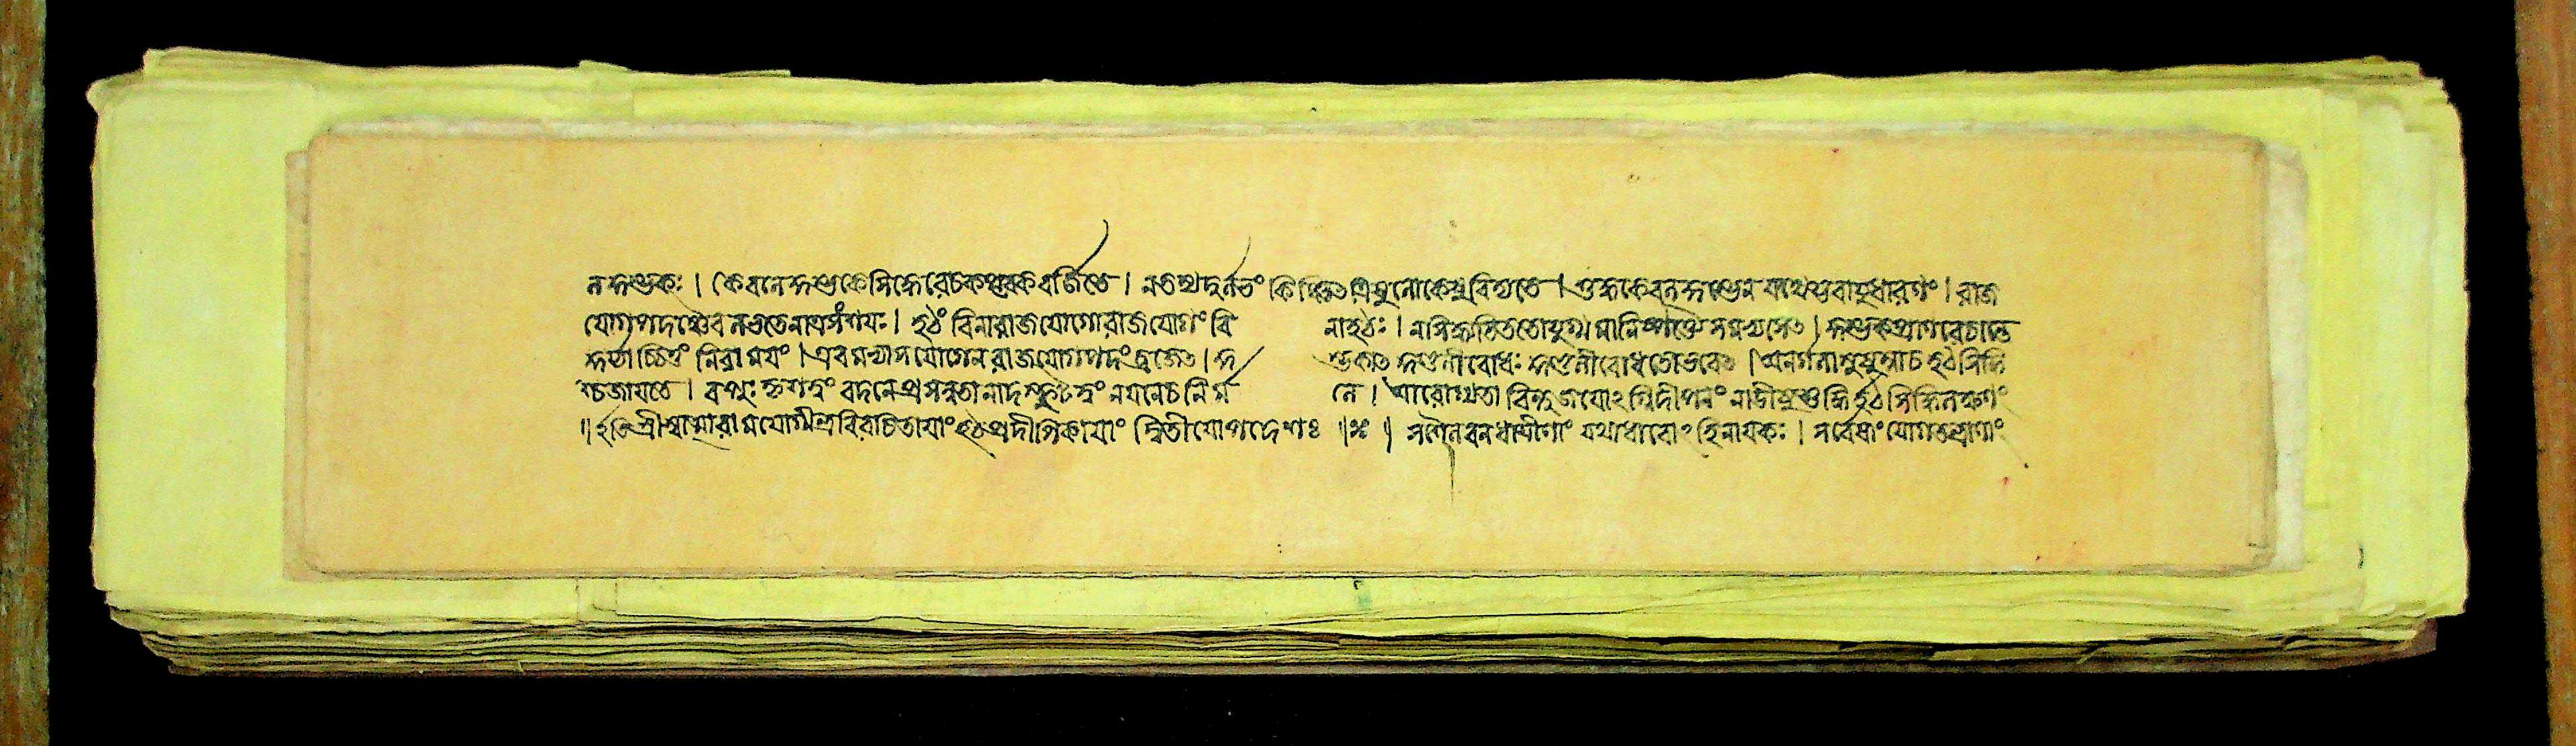 ল কুম্ভকঃ । কেবলে কুম্ভকে সিদ্ধে রেচকপূরকবর্জিতে । ন তস্য দুর্লভং কিঞ্চিত্ ত্রিষু লোকেষু বিদ্যতে । শুদ্ধকেবলকুম্ভেন যথেষ্ঠবায়ুধারণং । রাজ
যোগপদঞ্চৈব লভতে নাত্র সংশয়ঃ । হঠং বিনা রাজযোগো রাজযোগং বি না হঠঃ । ন সিদ্ধ্যতি ততো যুগ্মমানিষ্পত্তৈ সমভ্যসেত্ । কুম্ভকপ্রাণরেচান্তে
কুর্য্যাচ্চিত্তং নিরাশ্রয়ং । এবমভ্যাসযোগেন রাজযোগপদং ব্রজেত্ । কু ম্ভকাত্ কুণ্ডলীবোধঃ কুণ্ডলীবোধতো ভবেত্ । অনর্গলা সুষুম্না চ হঠসিদ্ধি
শ্চ জায়তে । বপুঃ কৃশত্বং বদনে প্রসন্নতা নাদস্ফুটত্বং নয়নে চ নির্ম লে । আরোগ্যতা বিন্দুজয়োঽগ্নিদীপনং নাড়ীষু শুদ্ধির্হঠসিদ্ধিলক্ষণং
॥ ইতি শ্রীস্বাত্মারামযোগীন্দ্রবিরচিতায়াং হঠপ্রদীপিকায়াং দ্বিতীয়োপদেশঃ ॥ সশৈলবনধাত্রীণাং যথাধারোঽহিনায়কঃ । সর্বেষাং যোগতন্ত্রাণাং